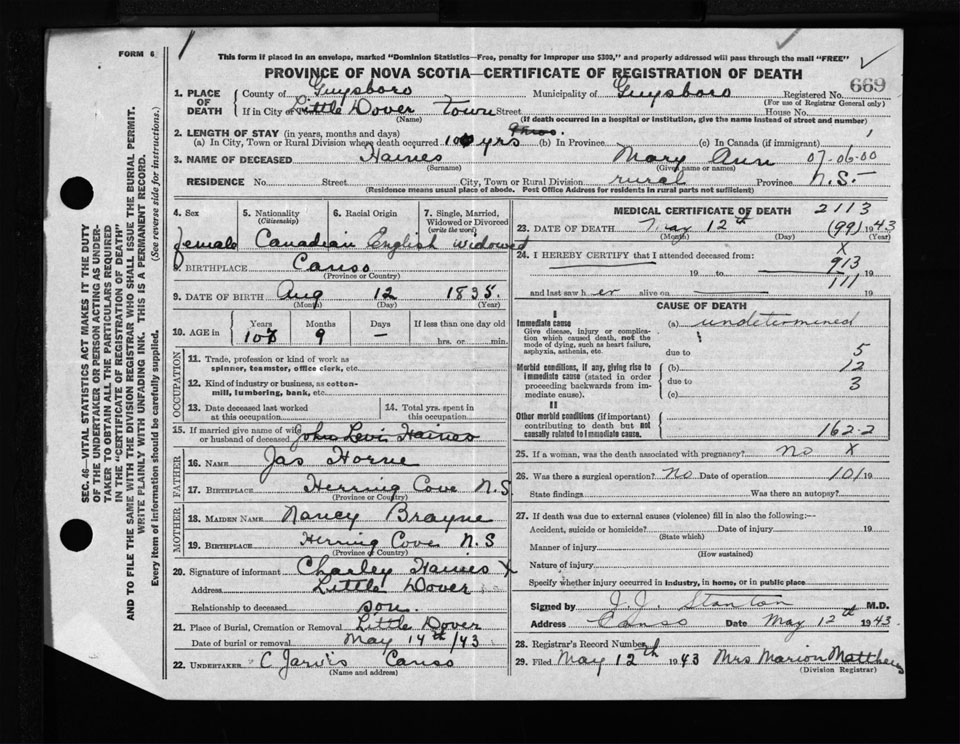 FORM 6
This form if placed in an envelope, marked "Dominion Statistics—Free, penalty for improper use $300," and properly addressed will pass through the mail "FREE"
PROVINCE OF NOVA SCOTIA—CERTIFICATE OF REGISTRATION OF DEATH
669
1. PLACE OF DEATH County of Guysboro Municipality of Guysboro Registered No.
(For use of Registrar General only)
If in City or Little Dover Town Street House No.
(Name) (If death occurred in a hospital or institution, give the name instead of street and number)
2. LENGTH OF STAY (in years, months and days)
(a) In City, Town or Rural Division where death occurred 10 yrs (b) In Province (c) In Canada (if immigrant) 1
3. NAME OF DECEASED Haines Mary Ann 07-06-00
(Surname) (Given name or names)
RESIDENCE No. Street City, Town or Rural Division rural Province N.S.
(Residence means usual place of abode. Post Office Address for residents in rural parts not sufficient)
4. Sex female
5. Nationality (Citizenship) Canadian
6. Racial Origin English
7. Single, Married, Widowed or Divorced (write the word) widowed
8. BIRTHPLACE Canso
(Province or Country)
9. DATE OF BIRTH Aug 12 1835
(Month) (Day) (Year)
10. AGE in Years Months Days If less than one day old
107 9 — hrs. or min.
OCCUPATION
11. Trade, profession or kind of work as spinner, teamster, office clerk, etc.
12. Kind of industry or business, as cotton-mill, lumbering, bank, etc.
13. Date deceased last worked at this occupation
14. Total yrs. spent in this occupation
15. If married give name of wife or husband of deceased John Levi Haines
FATHER
16. NAME Jas Horne
17. BIRTHPLACE Herring Cove N.S
(Province or Country)
MOTHER
18. MAIDEN NAME Nancy Brayne
19. BIRTHPLACE Herring Cove N.S
(Province or Country)
20. Signature of informant Charley Haines X
Address Little Dover
Relationship to deceased son
21. Place of Burial, Cremation or Removal Little Dover
Date of burial or removal May 14th/43
22. UNDERTAKER C Jarvis Canso
(Name and address)
MEDICAL CERTIFICATE OF DEATH 2113
23. DATE OF DEATH May 12th (99) 1943
(Month) (Day) (Year)
24. I HEREBY CERTIFY that I attended deceased from: X
913
19 to 19
111
and last saw her alive on 19
CAUSE OF DEATH
I
Immediate cause
Give disease, injury or complication which caused death, not the mode of dying, such as heart failure, asphyxia, asthenia, etc.
(a) undetermined
due to 5
Morbid conditions, if any, giving rise to immediate cause (stated in order proceeding backwards from immediate cause).
(b) 12
due to 3
(c)
II
Other morbid conditions (if important) contributing to death but not causally related to immediate cause.
162-2
25. If a woman, was the death associated with pregnancy? no X
26. Was there a surgical operation? No Date of operation 101 19
State findings Was there an autopsy?
27. If death was due to external causes (violence) fill in also the following:—
Accident, suicide or homicide? Date of injury 19
(State which)
Manner of injury
(How sustained)
Nature of injury
Specify whether injury occurred in industry, in home, or in public place
Signed by J. J. Stanton M.D.
Address Canso Date May 12th 1943
28. Registrar's Record Number
29. Filed May 12th 1943 Mrs Marion Matthews
(Division Registrar)
SEC. 46—VITAL STATISTICS ACT MAKES IT THE DUTY
OF THE UNDERTAKER OR PERSON ACTING AS UNDERTAKER TO OBTAIN ALL THE PARTICULARS REQUIRED
IN THE "CERTIFICATE OF REGISTRATION OF DEATH"
AND TO FILE THE SAME WITH THE DIVISION REGISTRAR WHO SHALL ISSUE THE BURIAL PERMIT.
WRITE PLAINLY WITH UNFADING INK. THIS IS A PERMANENT RECORD.
Every item of information should be carefully supplied. (See reverse side for instructions.)